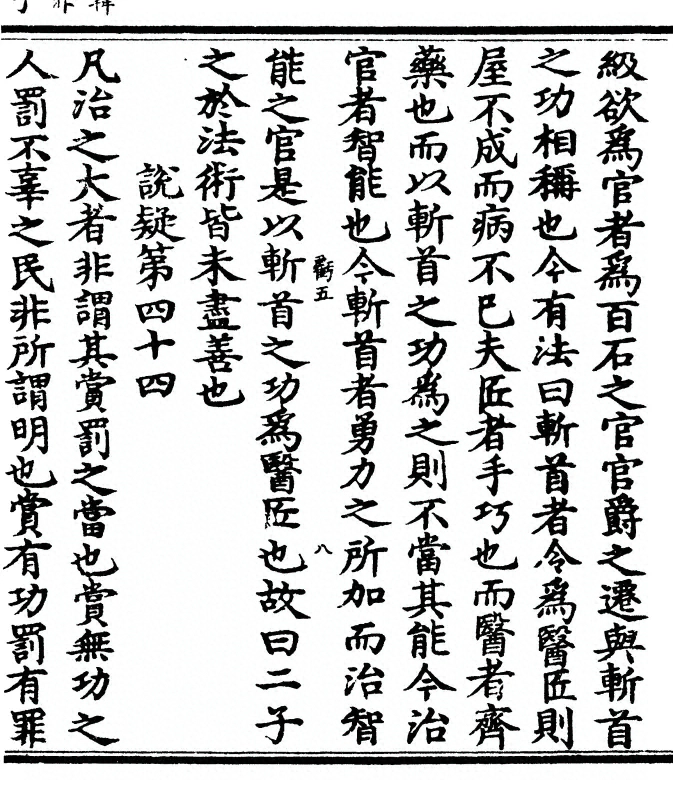 級欲爲官者爲百石之官官爵之遷與斬首
之功相稱也今有法曰斬首者令爲醫匠則
屋不成而病不已夫匠者手巧也而醫者齊
藥也而以斬首之功爲之則不當其能今治
官者智能也今斬首者勇力之所加而治智
能之官是以斬首之功爲醫匠也故曰二子
之於法術皆未盡善也
說疑第四十四
凡治之大者非謂其賞罰之當也賞無功之
人罰不辜之民非所謂明也賞有功罰有罪